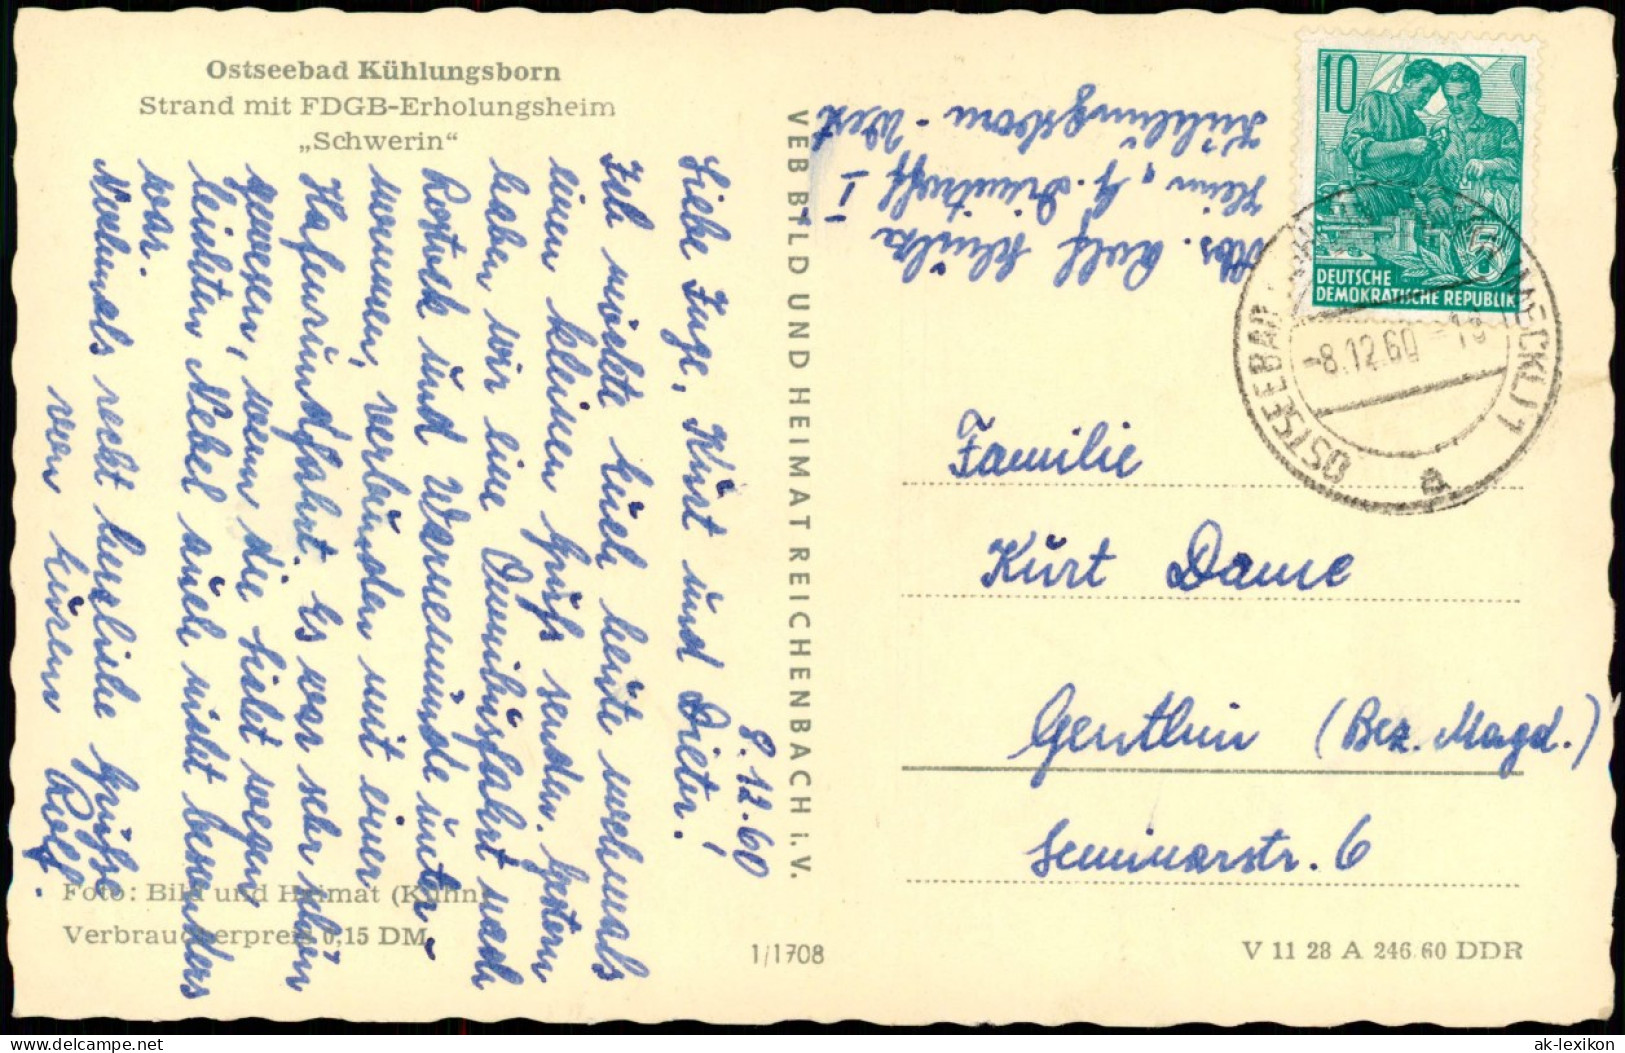 Ostseebad Kühlungsborn
Strand mit FDGB-Erholungsheim
„Schwerin“
8.12.60
Liebe Inge, Kurt und Dieter!
Ich möchte Euch heute nochmals
einen kleinen Gruß senden. Gestern
haben wir eine Omnibusfahrt nach
Rostock und Warnemünde unter-
nommen, verbunden mit einer
Hafenrundfahrt. Es war sehr schön
gewesen, wenn die Sicht wegen
leichten Nebel auch nicht besonders
war.
Nochmals recht herzliche Grüße
von Eurem Rolf.
Foto: Bild und Heimat (Kühn)
Verbraucherpreis 0,15 DM
1/1708
VEB BILD UND HEIMAT REICHENBACH i. V.
Abs. Rolf
Heim „G. Dimitroff I
Kühlungsborn - West
10
DEUTSCHE
DEMOKRATISCHE REPUBLIK
5
OSTSEEBAD KÜHLUNGSBORN (MECKL) 1
-8.12.60
a
Familie
Kurt Dame
Genthin (Bez. Magd.)
Seminarstr. 6
V 11 28 A 246.60 DDR
delcampe.net
ak-lexikon